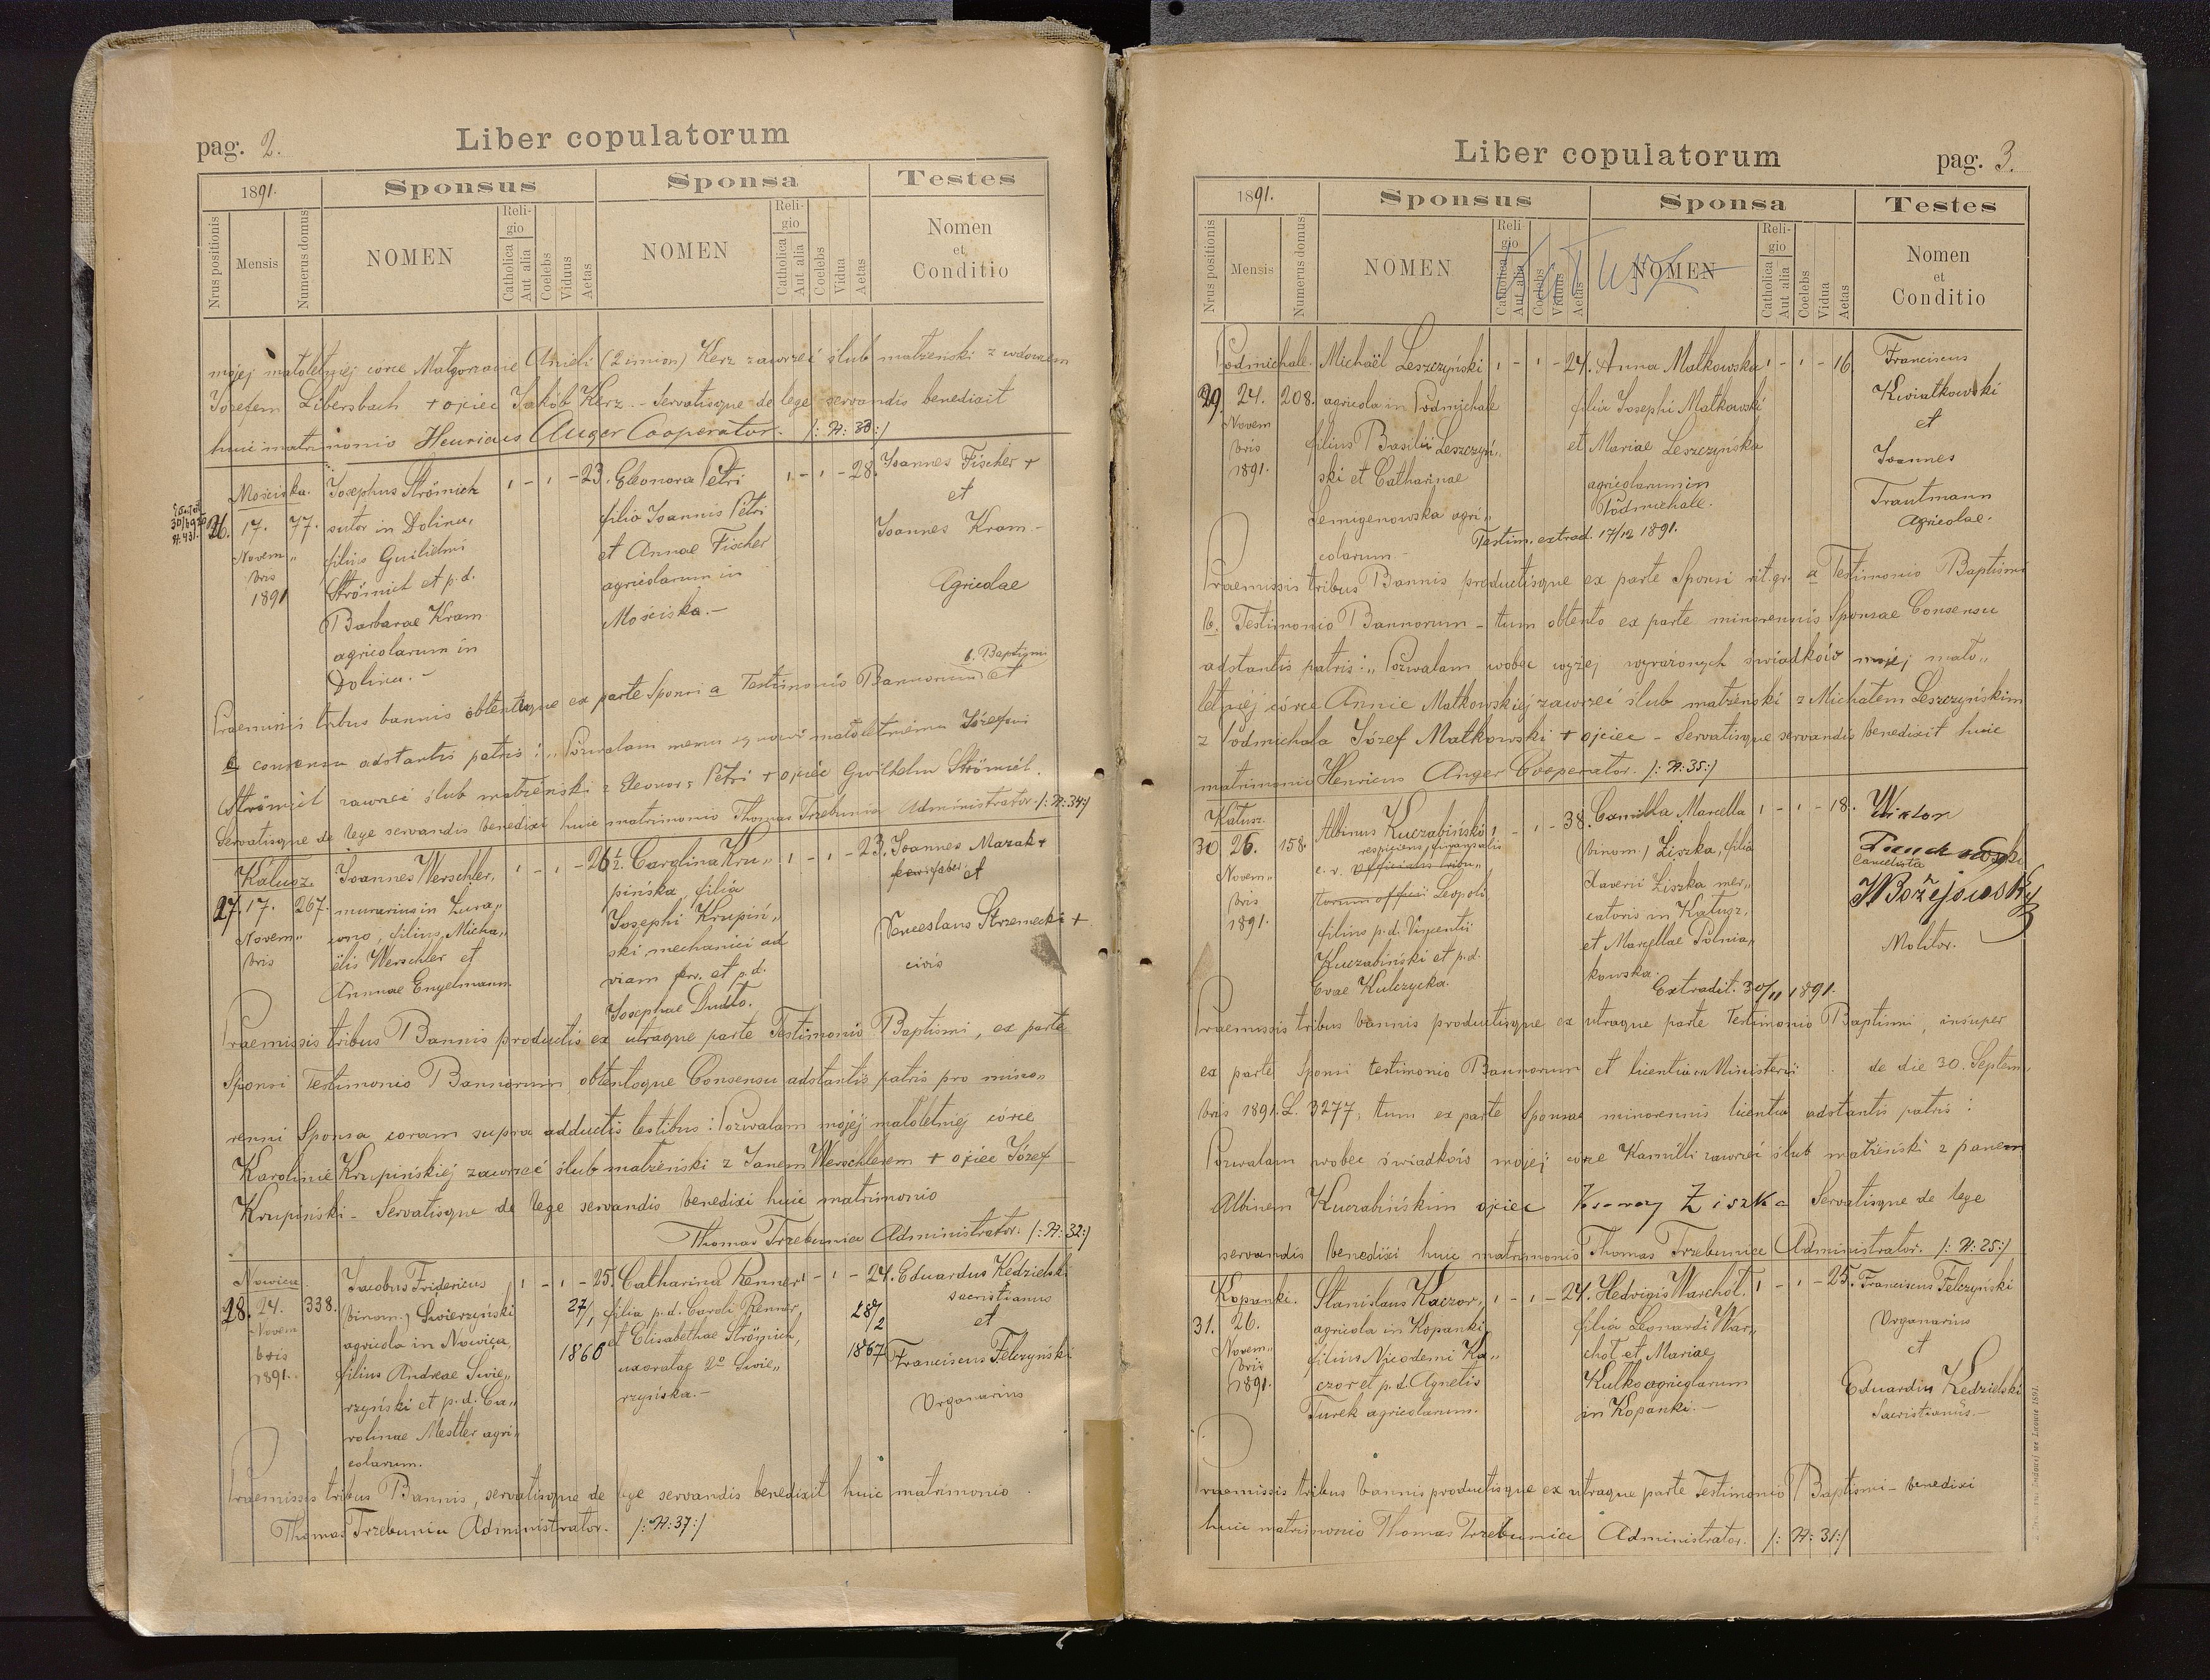 pag. 2.
Liber copulatorum
1891.
Sponsus
Sponsa
Testes
Nrus positionis
Mensis
Numerus domus
NOMEN
Religio
Catholica
Aut alia
Coelebs
Viduus
Aetas
NOMEN
Religio
Catholica
Aut alia
Coelebs
Vidua
Aetas
Nomen
et
Conditio
mojej małoletniej córce Małgorzacie Anieli (2 imion) Kerz zawrzeć ślub małżenski z wdowcem
Józefem Libersbach + ojciec Jakób Kerz. - Servatisque de lege servandis benedixit
huic matrimonio Henricus Anger Cooperator. /: N: 33:/
26.
Mościska.
17.
Novem„
bris
1891
77.
Josephus Strömich
sutor in Dolina,
filius Guilielmi
Strömich et p.d.
Barbarae Kram
agricolarum in
Dolina. -
1 - 1 - 23.
Eleonora Petri
filia Joannis Petri
et Annae Fischer
agricolarum in
Mościska. -
1 - 1 - 28.
Joannes Fischer +
et
Joannes Kram -
Agricolae
b. Baptismi
Praemissis tribus bannis obtentisque ex parte Sponsi a Testimonio Bannorum et
c consensu adstantis patris: „Pozwalam memu synowi małoletniemu Józefowi
Strömich zawrzeć ślub małżeński z Eleonorą Petri + ojciec Gwilhelm Strömich.
Servatisque de lege servandis benedixi huic matrimonio Thomas Trzebunia Administrator /: N: 34:/
27.
Kałusz.
17.
Novem„
bris
267.
Joannes Werschler,
murarius in Żura„
wno, filius Micha„
ëlis Werschler et
Annae Engelmann.
1 - 1 - 26½
Carolina Kru„
pińska, filia
Josephi Krupiń„
ski mechanici ad
viam ferr. et p.d.
Josephae Dudto.
1 - 1 - 23.
Joannes Mazak +
et
Venceslaus Strzemecki +
civis
Praemissis tribus Bannis productis ex utraque parte Testimonio Baptismi, ex parte
Sponsi Testimonio Bannorum obtentoque Consensu adstantis patris pro mino„
renni Sponsa coram supra adductis testibus: Pozwalam mojej małoletniej córce
Karolinie Krupińskiej zawrzeć ślub małżeński z Janem Werschlerem + ojciec Józef
Krupiński - Servatisque de lege servandis benedixi huic matrimonio
Thomas Trzebunia Administrator. /: N: 32:/
28.
Nowica
24.
Novem
bris
1891.
338.
Jacobus Fridericus
(binom.) Swierzyński
agricola in Nowica,
filius Andreae Swie„
rzyński et p.d. Ca„
rolinae Mestler agri„
colarum.
1 - 1 - 25.
27/1
1866
Catharina Renner
filia p.d. Caroli Renner,
et Elisabethae Strömich,
uxoratae 2o Swie„
rzyńska. -
1 - 1 - 24.
28/2
1867
Eduardus Kedzielski
sacristianus
et
Franciscus Felczyński
Organarius
Praemissis tribus Bannis, servatisque de lege servandis benedixit huic matrimonio
Thomas Trzebunia Administrator. /: N: 37:/
Liber copulatorum
pag. 3.
1891.
Sponsus
Sponsa
Testes
Nrus positionis
Mensis
Numerus domus
NOMEN
Religio
Catholica
Aut alia
Coelebs
Viduus
Aetas
NOMEN
Religio
Catholica
Aut alia
Coelebs
Vidua
Aetas
Nomen
et
Conditio
29.
Podmichale.
24.
Novem
bris
1891.
208.
Michaël Leszczyński
agricola in Podmichale
filius Basilii Leszczyń„
ski et Catharinae
Semigenowska agri„
colarum -
1 - 1 - 24.
Anna Małkowska
filia Josephi Małkowski
et Mariae Leszczyńska
agricolarum in
Podmichale.
1 - 1 - 16
Franciscus
Kwiatkowski
et
Joannes
Trautmann
Agricolae.
Testim. extrad. 17/12 1891.
Praemissis tribus Bannis productisque ex parte Sponsi rit.gr. a Testimonio Baptismi
b. Testimonio Bannorum - tum obtento ex parte minorennis Sponsae Consensu
adstantis patris: „Pozwalam wobec wyżej wyrażonych świadków mojej mało„
letniej córce Annie Małkowskiej zawrzeć ślub małżeński z Michałem Leszczyńskim
z Podmichala Józef Małkowski + ojciec - Servatisque servandis benedixit huic
matrimonio Henricus Anger Cooperator. /: N: 35:/
30.
Kałusz.
26.
Novem„
bris
1891.
158.
Albinus Kuczabiński
respiciens finansialis
c. r. Leopoli
filius p.d. Vincentii
Kuczabiński et p.d.
Evae Kulczycka.
1 - 1 - 38.
Camilla Marcella
(binom.) Ziszka, filia
Xaverii Ziszka mer„
catoris in Kałusz,
et Marcellae Polnia„
kowska.
1 - 1 - 18.
Wiktor
Cancelista
W Bożejowski
Molitor.
Extradit. 30/11 1891.
Praemissis tribus bannis productisque ex utraque parte Testimonio Baptismi, insuper
ex parte Sponsi testimonio Bannorum et licentia Ministerii de die 30. Septem„
bris 1891. L. 3277, tum ex parte Sponsae minorennis licentia adstantis patris:
Pozwalam wobec świadków mojej córce Kamilli zawrzeć ślub małżeński z panem
Albinem Kuczabińskim ojciec Ksawery Ziszka Servatisque de lege
servandis benedixi huic matrimonio Thomas Trzebunia Administrator. /: N: 25:/
31.
Kopanki.
26.
Novem„
bris
1891.
Stanislaus Kaczor,
agricola in Kopanki
filius Nicodemi Ka„
czor et p.d. Agnetis
Turek agricolarum.
1 - 1 - 24.
Hedvigis Warchoł.
filia Leonardi War„
choł et Mariae
Kulko agricolarum
in Kopanki. -
1 - 1 - 25.
Franciscus Felczyński
Organarius
et
Eduardus Kedzielski
Sacristianus. -
Praemissis tribus bannis productisque ex utraque parte Testimonio Baptismi - benedixi
huic matrimonio Thomas Trzebunia Administrator. /: N: 31:/